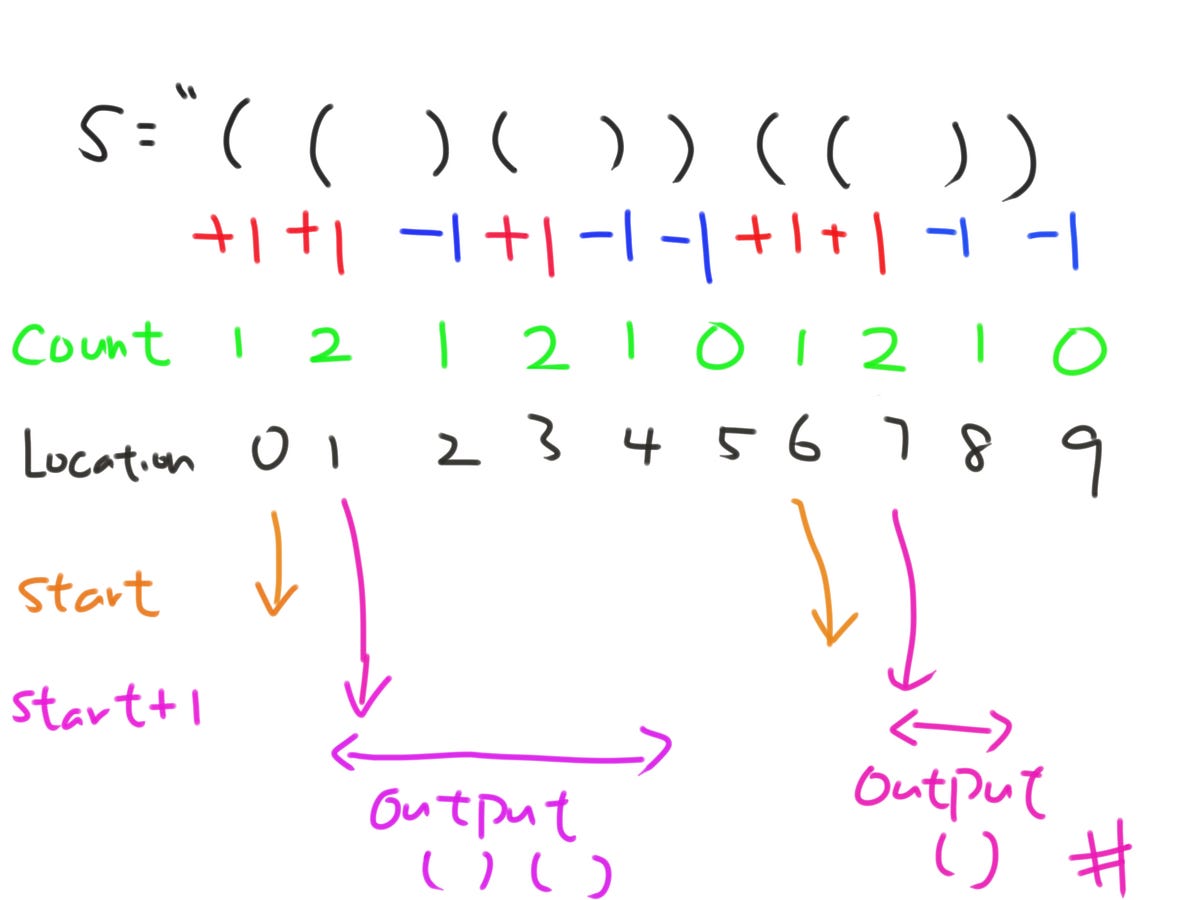 S = "( ( ) ( ) ) ( ( ) )
+1 +1 -1 +1 -1 -1 +1 +1 -1 -1
Count 1 2 1 2 1 0 1 2 1 0
Location 0 1 2 3 4 5 6 7 8 9
start
start+1
Output Output
( ) ( ) ( ) #